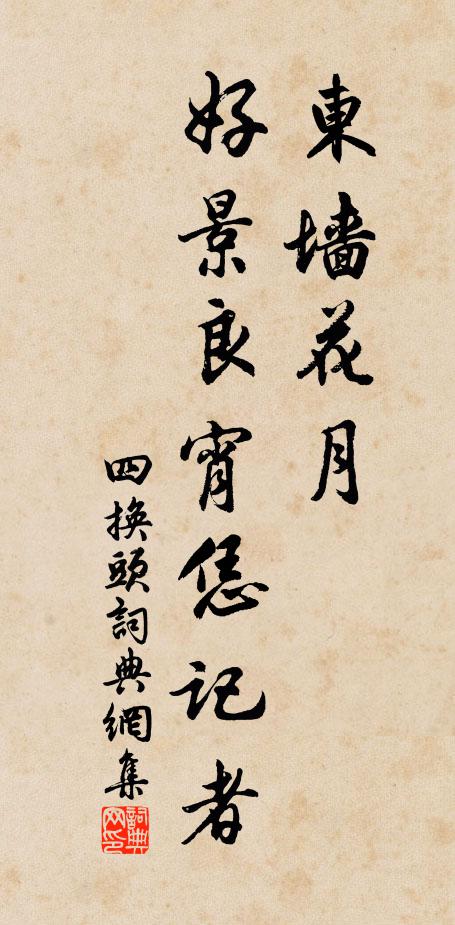 東墙花月
好景良宵恁记者
四换頭詞典網集
詞典网印